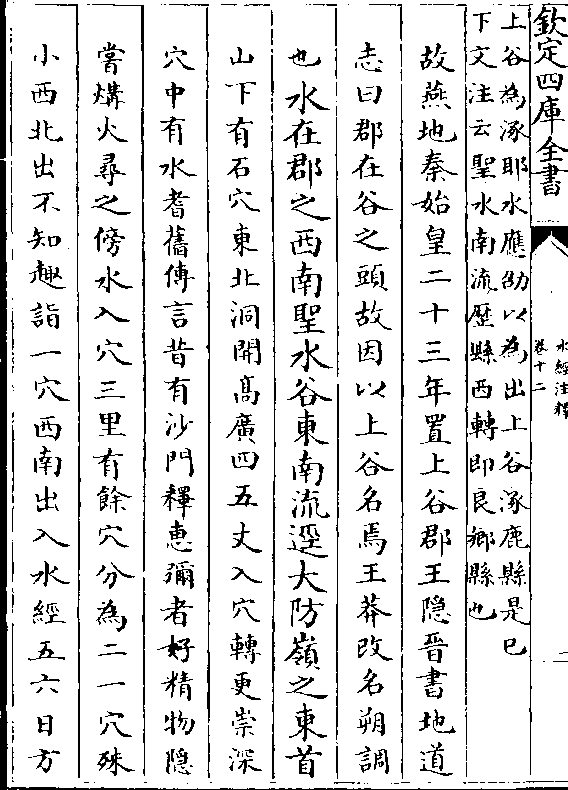 欽定四庫全書
水經注釋
卷十二
二
上谷為涿耶水應劭以為出上谷涿鹿縣是已
下文注云聖水南流歷縣西轉即良鄉縣也
故燕地秦始皇二十三年置上谷郡王隐晉書地道
志曰郡在谷之頭故因以上谷名焉王莽改名朔調
也水在郡之西南聖水谷東南流逕大防嶺之東首
山下有石穴東北洞開髙廣四五丈入穴轉更崇深
穴中有水耆舊傳言昔有沙門釋惠彌者好精物隐
嘗㷭火尋之傍水入穴三里有餘穴分為二一穴殊
小西北出不知趣詣一穴西南出入水經五六日方